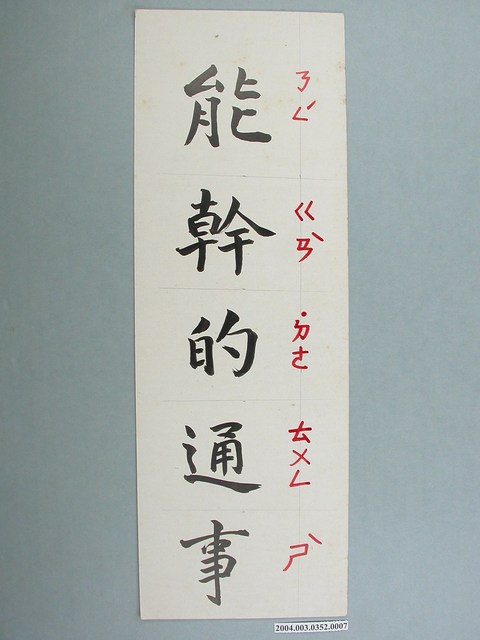 能幹的通事
ㄋㄥˊ ㄍㄢˋ ˙ㄉㄜ ㄊㄨㄥ ㄕˋ
2004.003.0352.0007